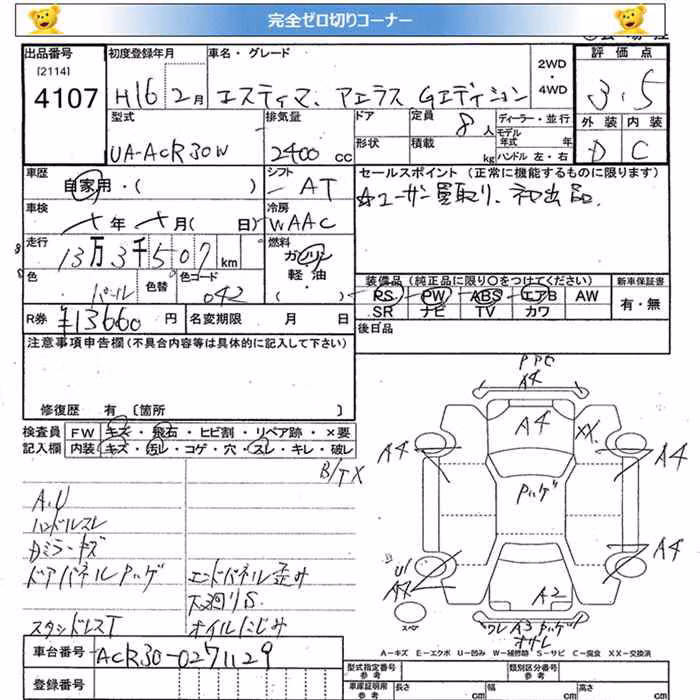 完全ゼロ切りコーナー
出品番号
[2114]
4107
初度登録年月
H16 2月
車名・グレード
エスティマ アエラス Gエディション
2WD
・
4WD
評価点
3.5
外装 内装
D C
型式
UA-ACR30W
排気量
2400 cc
ドア
形状
定員 8人
積載 kg
ディーラー・並行
モデル年式 年
ハンドル 左・右
車歴
自家用・( )
シフト
AT
車検
年 月( 日)
冷房
WAAC
走行
13万3千507 km
燃料
ガソリン
軽・油
( )
色
パール
色替
色コード
042
R券 ¥13660 円
名変期限 月 日
セールスポイント (正常に機能するものに限ります)
☆ユーザー買取り、初出品。
装備品 (純正品に限り○をつけてください)
新車保証書
PS PW ABS エアB AW
有・無
SR ナビ TV カワ
後日品
注意事項申告欄(不具合内容等は具体的に記入して下さい)
修復歴 有 〔箇所 〕
検査員 FW キズ・飛石・ヒビ割・リペア跡・×要
記入欄 内装 キズ・汚レ・コゲ・穴・スレ・キレ・破レ
B/TX
A.U
ハンドルスレ
Dミラーキズ
ドアパネルハゲ エンドパネル歪み
下廻りS
スタッドレスT オイルにじみ
PPC
A4
A4
XX
A4 A4
Pハゲ
U1
A4
A2
ワレ A3 Pハゲ
スペア
A-キズ E-エクボ U-凹み W-補修跡 S-サビ C-腐食 XX-交換済
車台番号 ACR30-0271129
登録番号
型式指定番号
参考
類別区分番号
参考
車庫証明用
参考
長さ cm 幅 cm 高さ cm